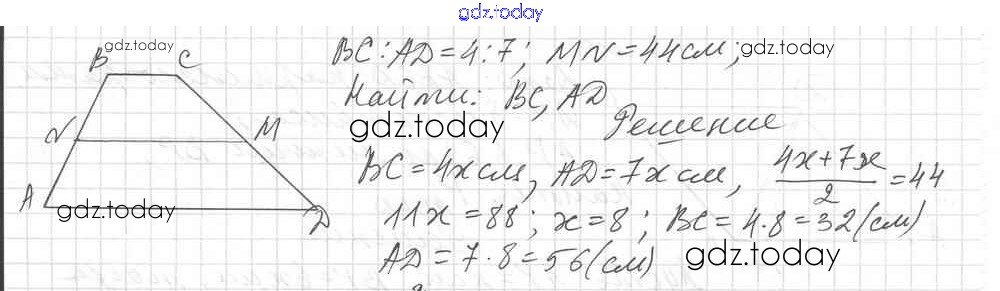 gdz.today
gdz.today
B C
BC:AD=4:7; MN=44см;
gdz.today
Найти: BC, AD
gdz.today
Решение
N M
BC=4x см, AD=7x см, (4x+7x)/2=44
A D
gdz.today
11x=88; x=8; BC=4·8=32(см)
AD=7·8=56(см)
gdz.today